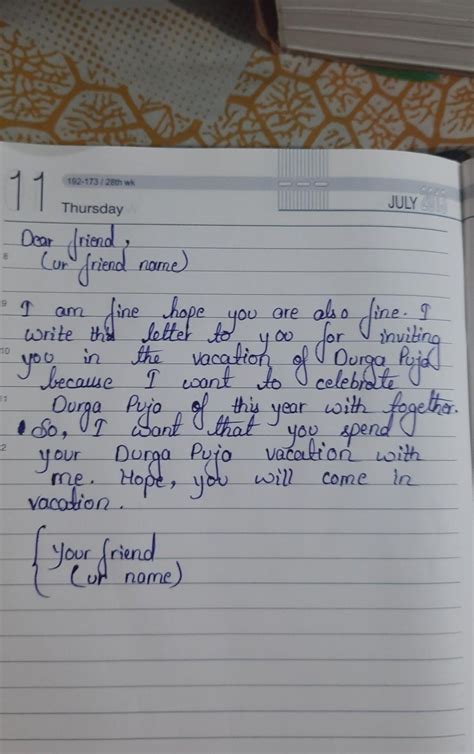 11
192-173 / 28th wk
Thursday
JULY
Dear friend,
8
(ur friend name)
9
I am fine hope you are also fine. I
write this letter to you for inviting
10
you in the vacation of Durga Puja
because I want to celebrate
11
Durga Puja of this year with together.
So, I want that you spend
2
your Durga Puja vacation with
me. Hope, you will come in
vacation.
{ Your friend
(ur name)